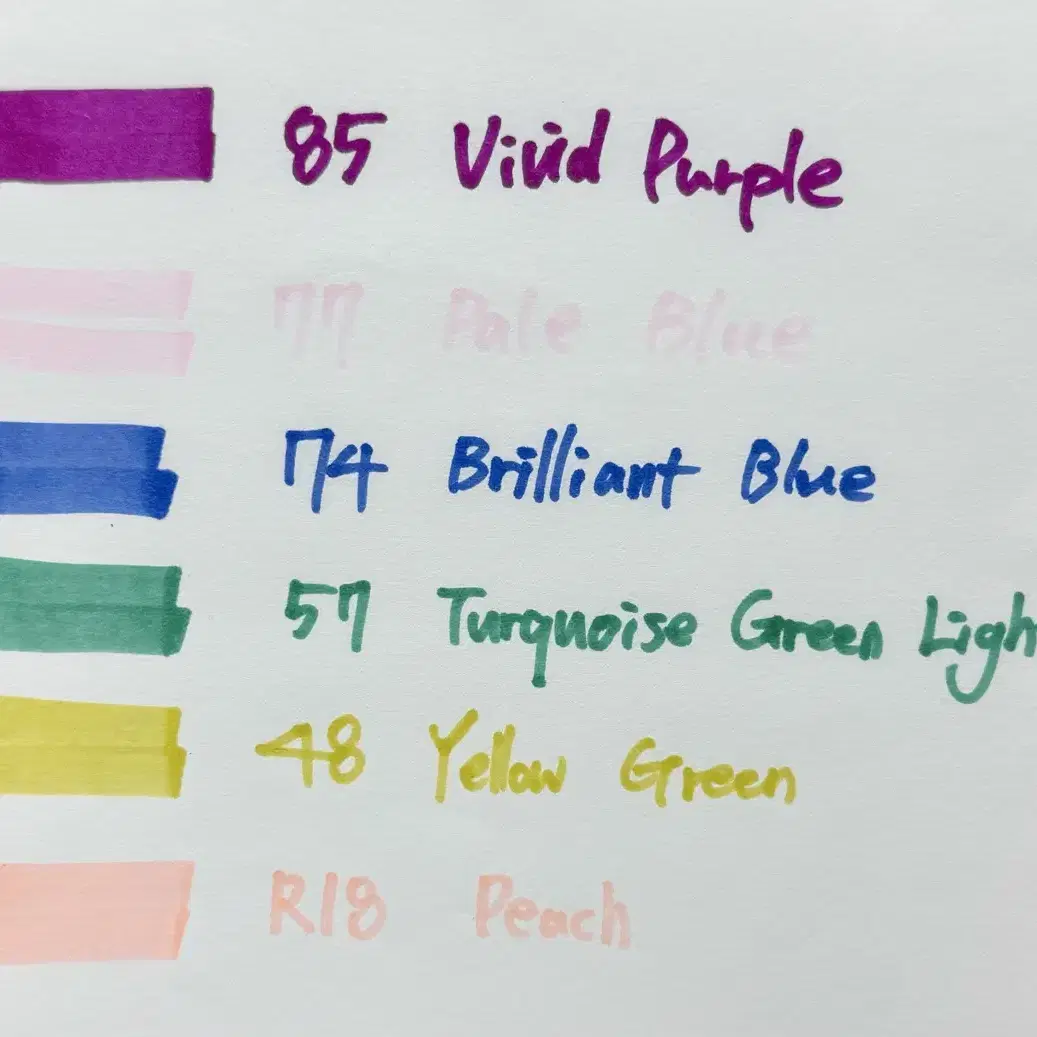 85 Vivid Purple
77 Pale Blue
74 Brilliant Blue
57 Turquoise Green Ligh
48 Yellow Green
R18 Peach